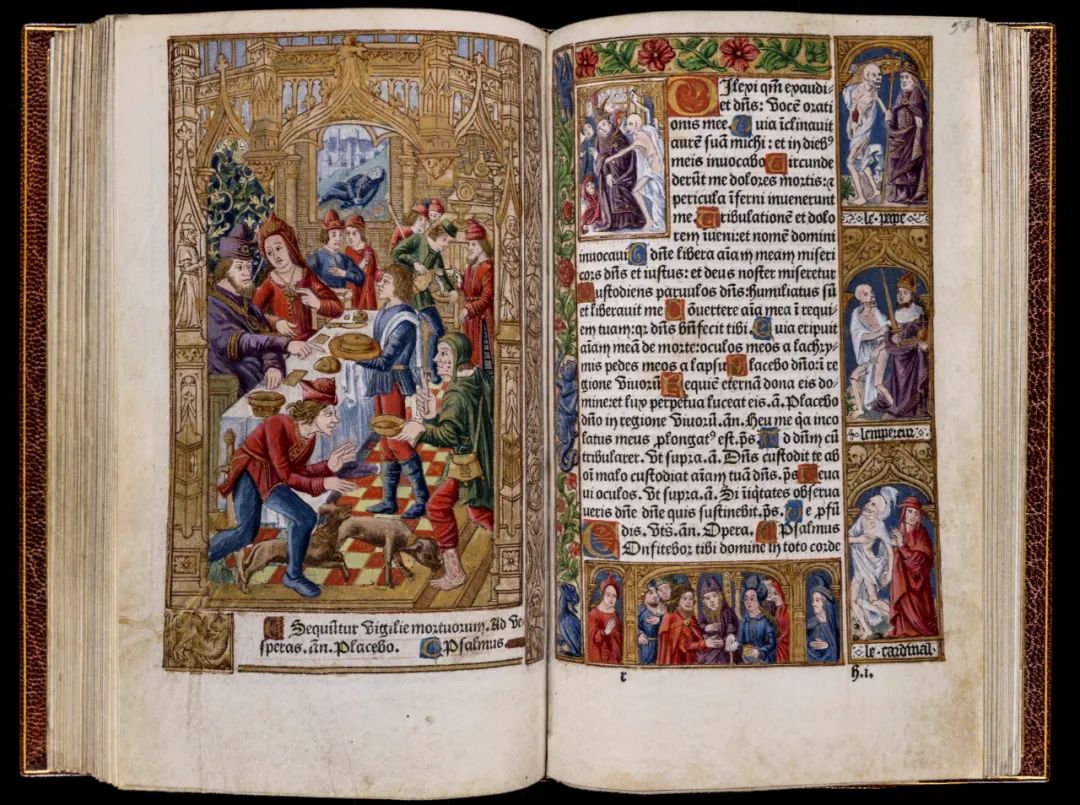 Sequũtur Vigilie mortuorum. Ad Ve
speras. añ. Placebo. Psalmus
57
Ilexi qm̃ exaudi-
et dñs: Vocẽ orati
onis mee. Quia ĩclinauit
aurẽ suã michi: et in dieb⁹
meis inuocabo Circunde
derũt me dolores mortis: ⁊
pericula ĩferni inuenerunt
me. Tribulationẽ et dolo
rem iueni: et nomẽ domini
inuocaui O dñe libera aĩam meam miseri
cors dñs et iustus: et deus noster miseretur
Custodiens paruulos dñs: humiliatus sũ
et liberauit me Cõuertere aĩa mea ĩ requi
em tuam: qꝛ dñs bñfecit tibi. Quia eripuit
aĩam meã de morte: oculos meos a lachry
mis pedes meos a lapsu Placebo dño: ĩ re
gione Viuorũ Requiẽ eternã dona eis do-
mine: et lux perpetua luceat eis. ã. Placebo
dño in regione Viuorũ. añ. Heu me q̃a inco
latus meus ꝓlongat⁹ est. p̃s Ad dñm cũ
tribularer. Vt supra. ã. Dñs custodit te ab
oĩ malo custodiat aĩam tuã dñs. p̃s Leua
ui oculos. Vt supra. ã. Si ĩiq̃tates obserua
ueris dñe dñe quis sustinebit. p̃s. De ꝓfũ
dis. Vts̃. añ. Opera. Psalmus
Onfitebor tibi domine in toto corde
le pape
lempereur
le cardinal
r
h.i.